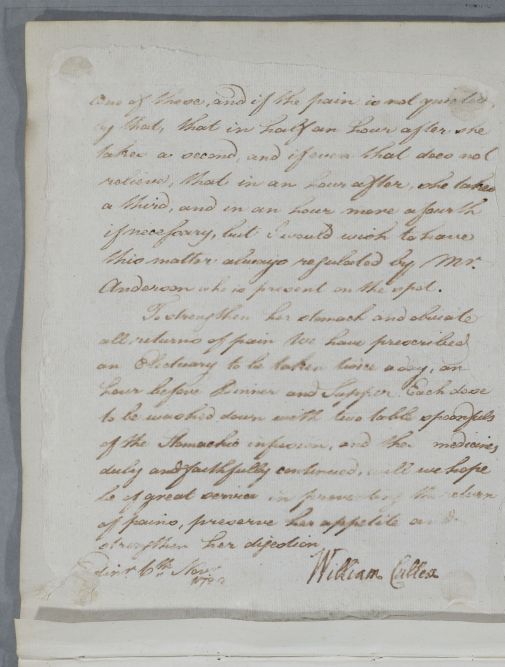 one of these, and if the pain is not quieted
by that, that in half an hour after she
takes a second, and if even that does not
relieve, that in an hour after, she takes
a third, and in an hour more a fourth
if necessary, but I would wish to have
this matter always regulated by Mr.
Anderson who is present on the spot.
To strengthen her stomach and obviate
all returns of pain We have prescribed
an Electuary to be taken twice a day, an
hour before Dinner and Supper. Each dose
to be washed down with two table spoonfuls
of the Stomachic infusion, and these medicines
duly and faithfully continued, will we hope
be of great service in preventing the return
of pains, preserve her appetite and
strengthen her digestion
Edinr. 6th. Novr.
William Cullen